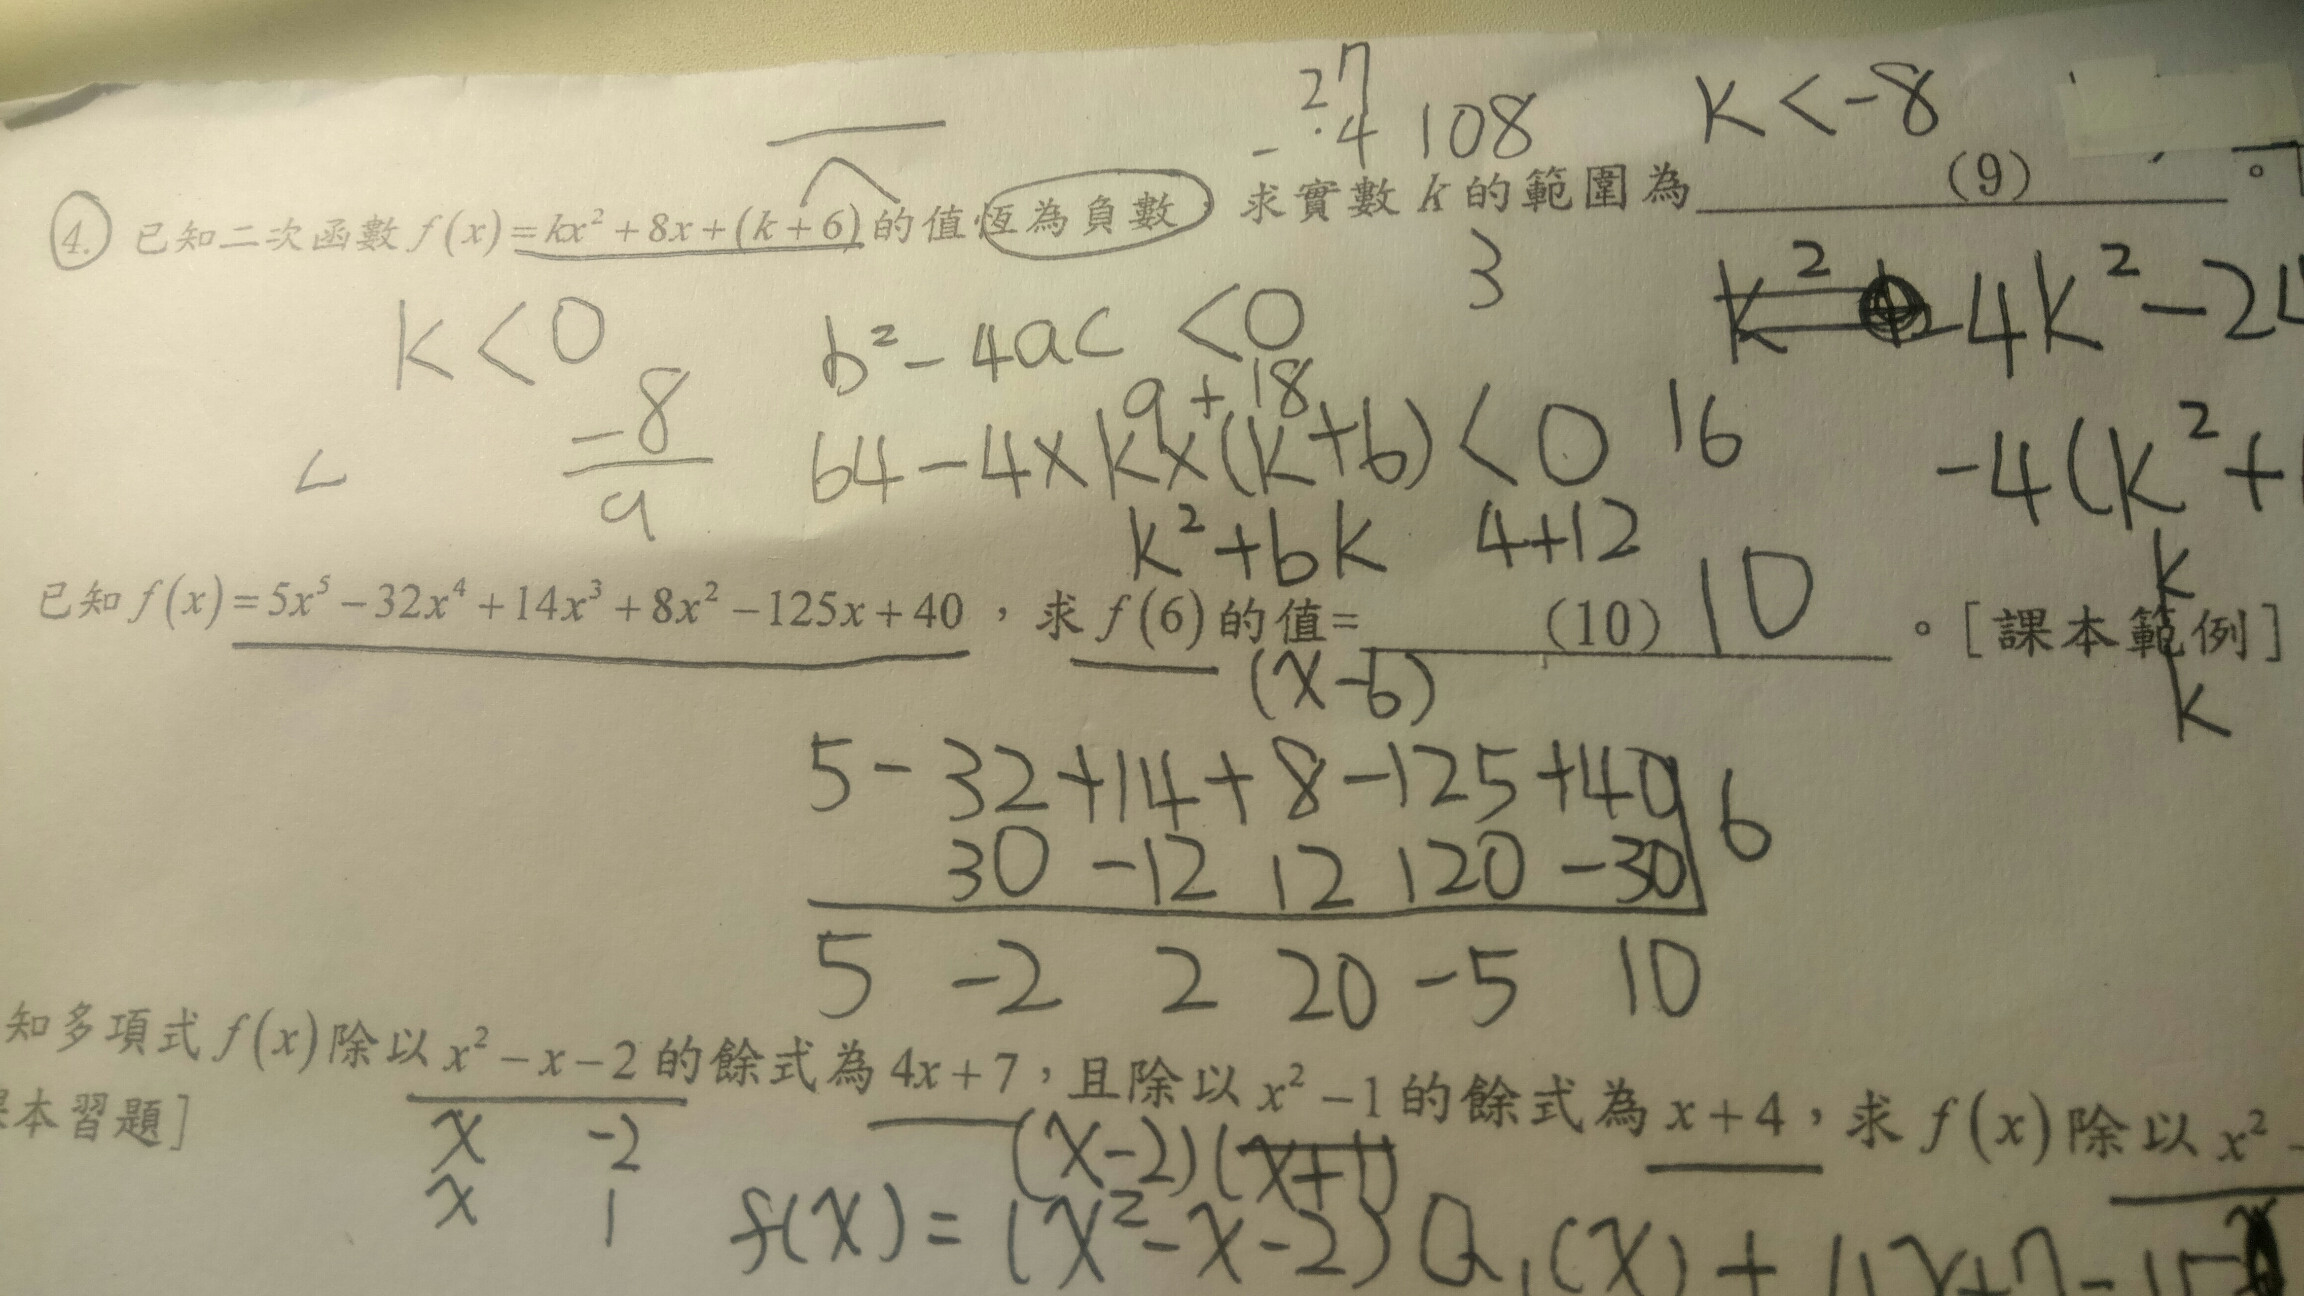 27
- ·4 108 k < -8
4. 已知二次函數 f(x)=kx²+8x+(k+6)的值恆為負數,求實數 k 的範圍為 (9) 。
3
k < 0 b² - 4ac < 0 -4k² - 24
-8
9 + 18
a
64 - 4 x k x (k+6) < 0 16 -4(k² +
k² + 6k 4+12
k
已知 f(x)=5x⁵-32x⁴+14x³+8x²-125x+40,求 f(6)的值= (10) 10 。[課本範例]
(x-6)
k
5 - 32 + 14 + 8 - 125 + 40 6
30 -12 12 120 -30
5 -2 2 20 -5 10
知多項式 f(x)除以 x²-x-2的餘式為 4x+7,且除以 x²-1的餘式為 x+4,求 f(x)除以 x²-
本習題]
x -2 (x-2)(x+1)
x 1
f(x) = (x²-x-2)Q₁(x) +